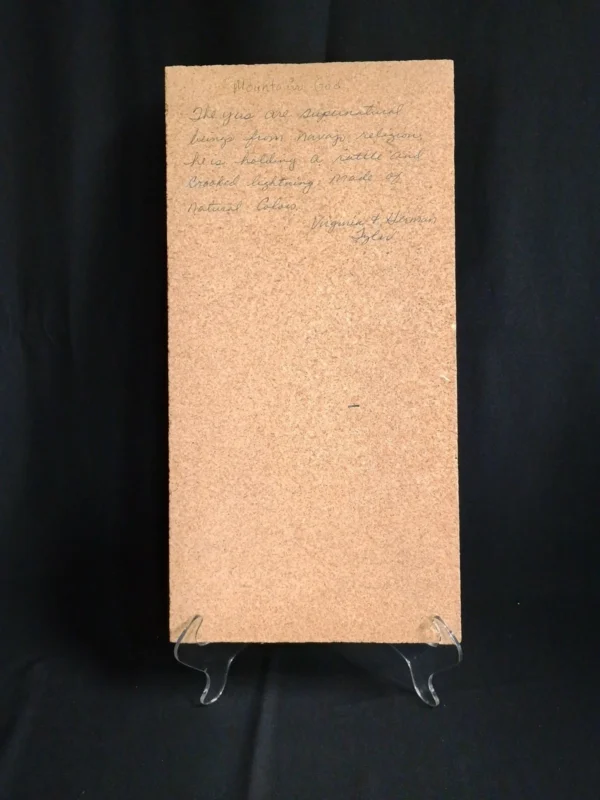 Mountain God
The yeis are supernatural
beings from navajo relagion,
he is holding a rattle and
Crooked lightning. Made of
Natural Colors.
Virginia & Herman